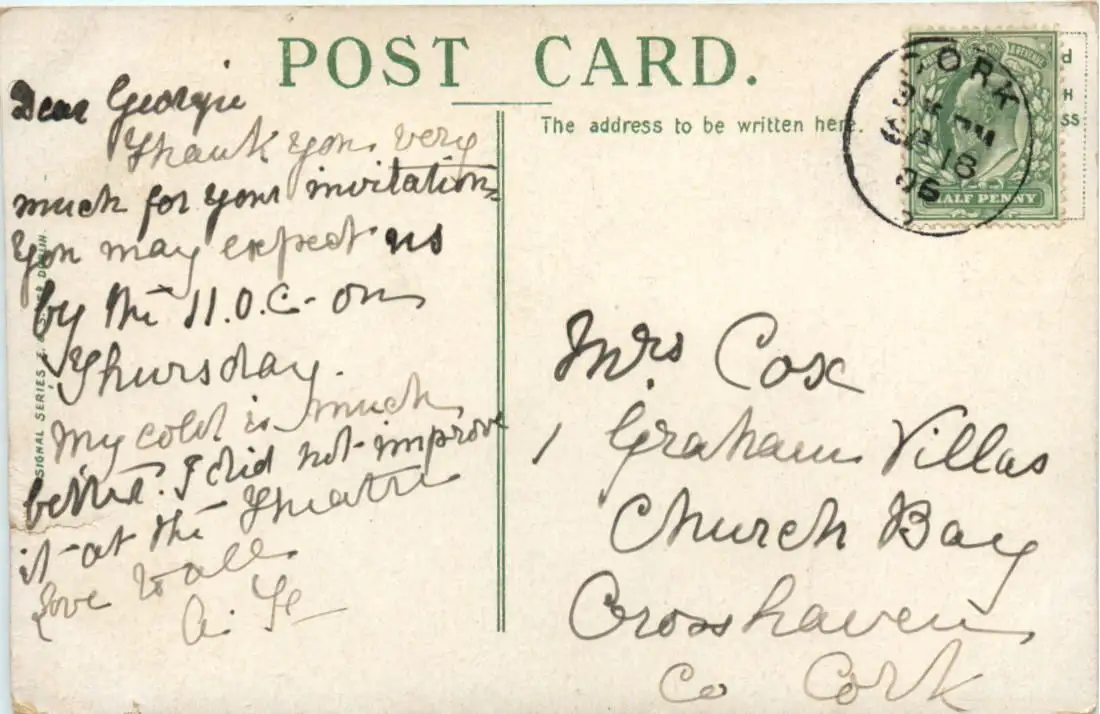 POST CARD.
The address to be written here.
Dear Georgie
Thank you very
much for your invitation
You may expect us
by the 11.0.C- on
Thursday.
My cold is much
better. I did not improve
it at the Theatre
Love to all
Mrs Cox
1 Graham Villas
Church Bay
Crosshaven
Co Cork
CORK
PM
18
06
HALF PENNY
SIGNAL SERIES